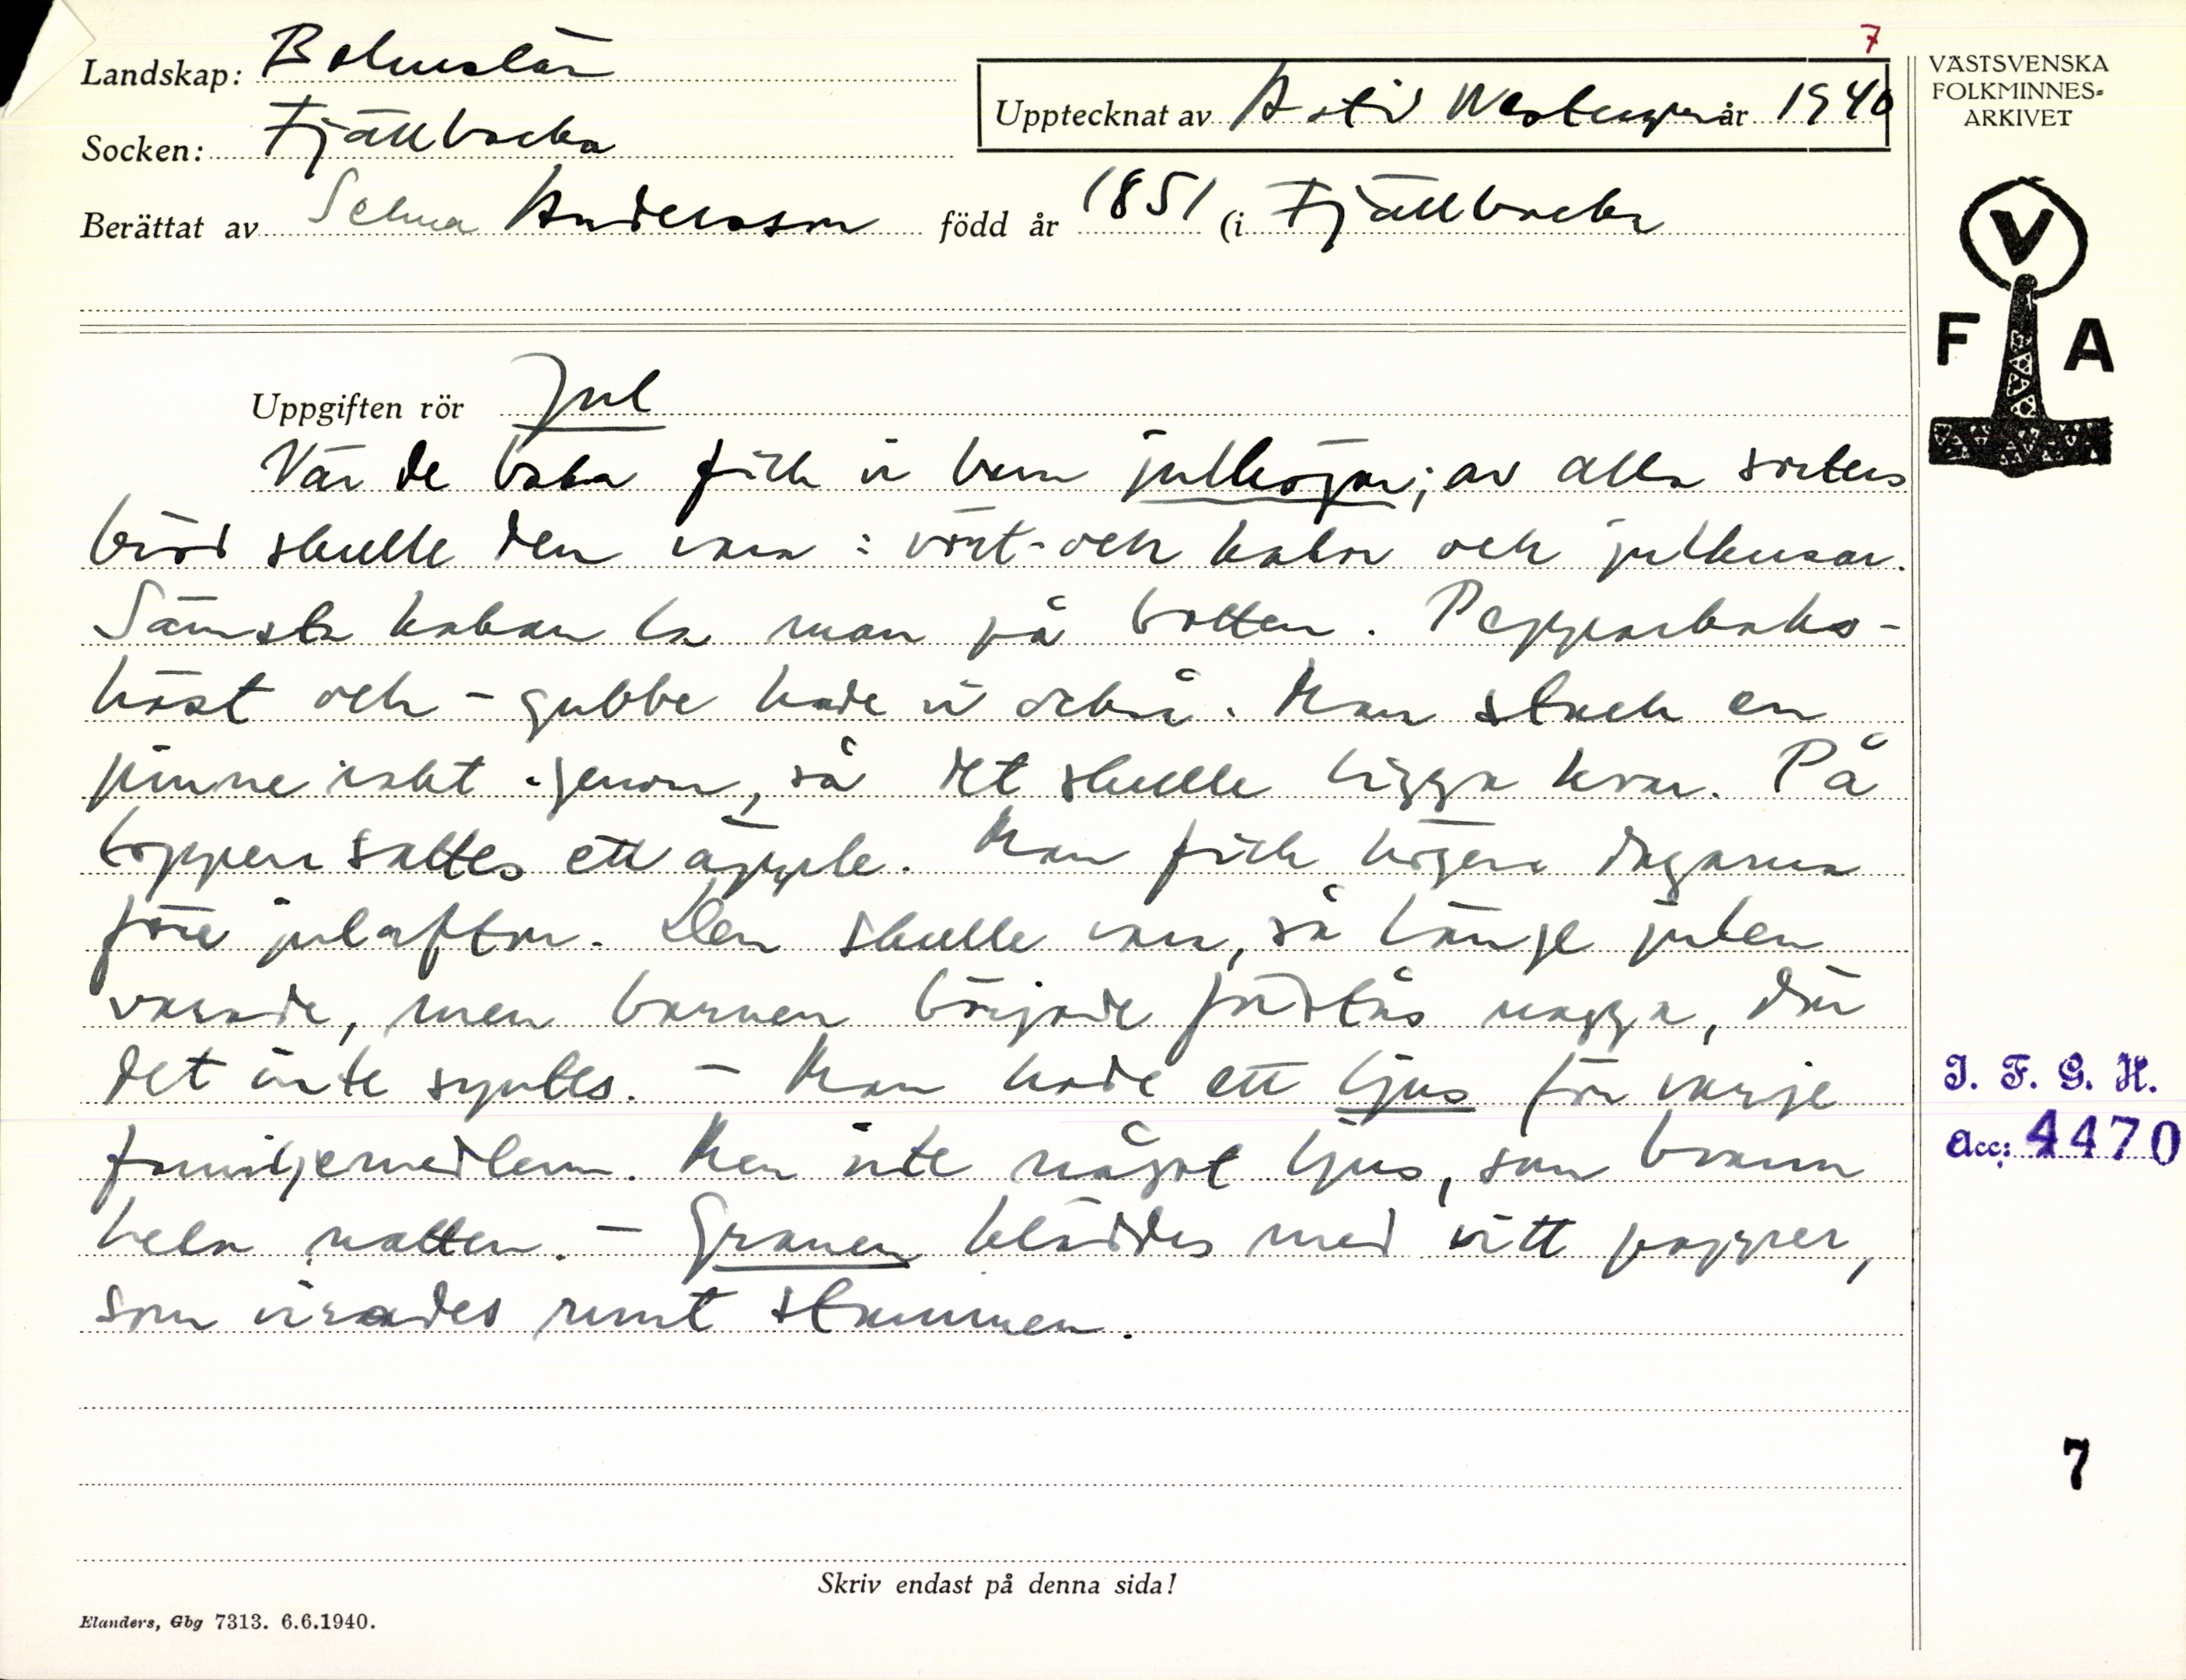 7
Landskap: Bohuslän
Socken: Fjällbacka
Upptecknat av Astrid år 1940
Berättat av Selma Andersson född år 1851 (i Fjällbacka
VÄSTSVENSKA
FOLKMINNES-
ARKIVET
V
F A
Uppgiften rör Jul
När de baka fick vi barn julhögar; av alla sorters
bröd skulle den vara: vört- och kakor och julkusar.
Sämsta kakan la man på botten. Pepparkaks-
häst och -gubbe hade vi också. Man stack en
pinne rakt igenom, så det skulle ligga kvar. På
toppen sattes ett äpple. Man fick högen dagarna
före julafton. Den skulle vara, så länge julen
varade, men barnen började nagga, där
det inte syntes. - Man hade ett ljus för varje
familjemedlem. Men inte något ljus, som brann
hela natten. - Granen kläddes med vitt papper,
som virades runt stammen.
I. F. G. H.
Acc: 4470
7
Skriv endast på denna sida!
Elanders, Gbg 7313. 6.6.1940.